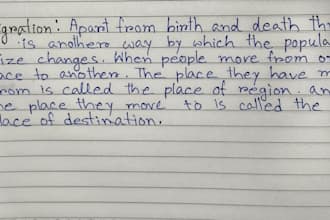 igration: Apart from birth and death th
is another way by which the popula
ize changes. When people move from o
ace to another. The place they have m
rom is called the place of region. an
he place they move to is called the
lace of destination.